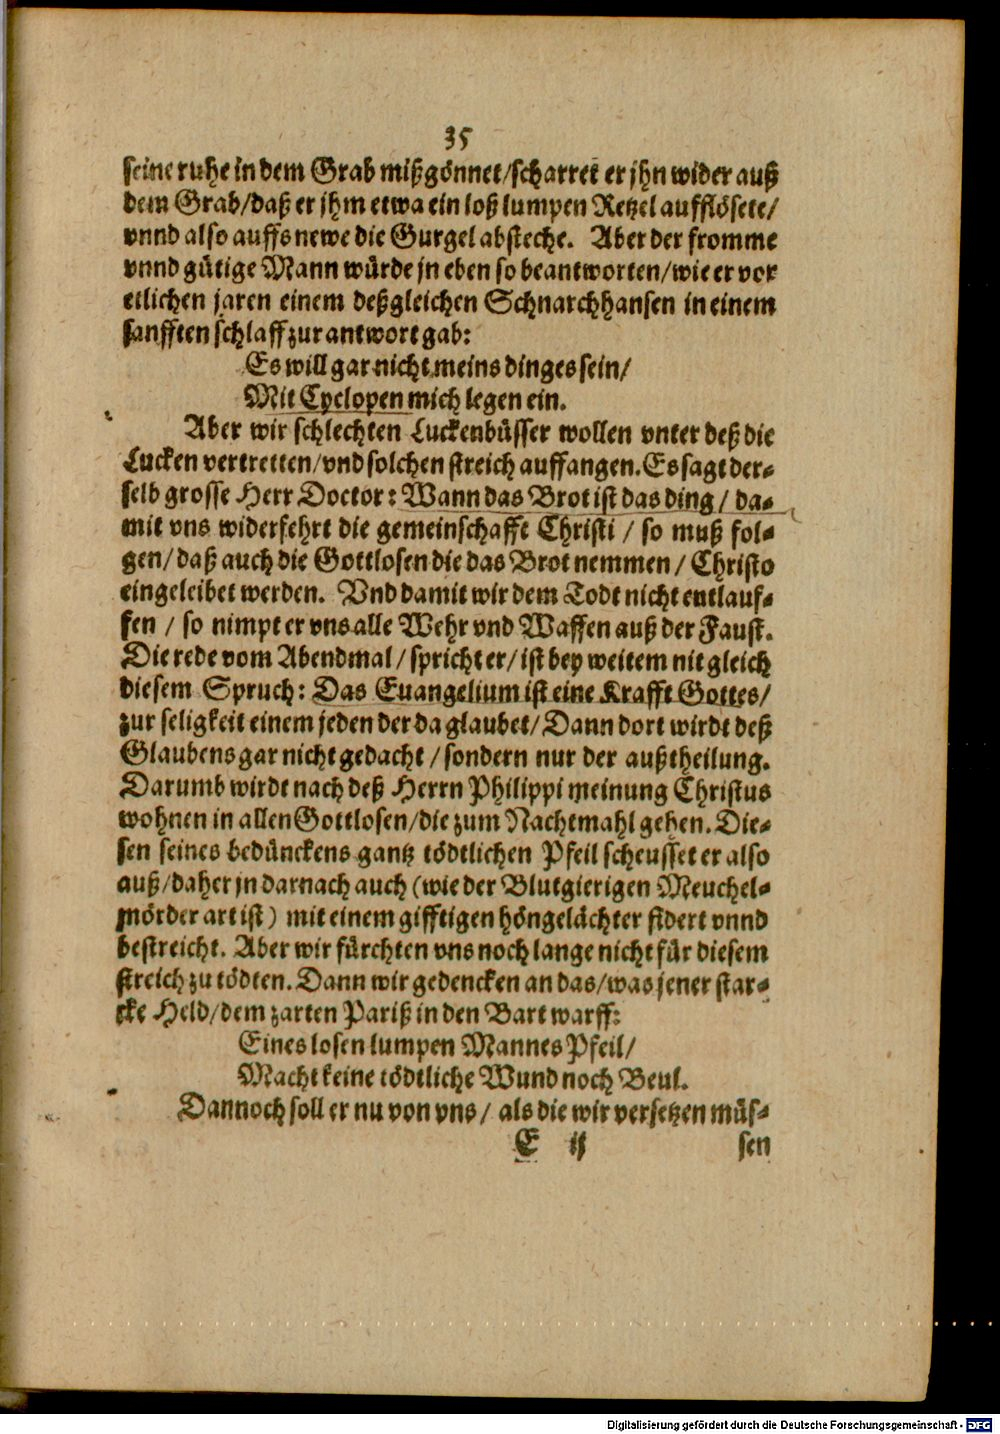 35
seine ruhe in dem Grab mißgönnet/scharret er jhn wider auß
dem Grab/daß er jhm etwa ein loß lumpen Retzel aufflösete/
vnnd also auffs newe die Gurgel absteche. Aber der fromme
vnnd gütige Mann würde jn eben so beantworten/wie er vor
etlichen jaren einem deßgleichen Schnarchhansen in einem
sanfften schlaff zur antwort gab:
Es will gar nicht meins dinges sein/
Mit Cyclopen mich legen ein.
Aber wir schlechten Luckenbüsser wollen vnter deß die
Lucken vertretten/vnd solchen streich auffangen. Es sagt der-
selb grosse Herr Doctor: Wann das Brot ist das ding / da-
mit vns widerfehrt die gemeinschafft Christi / so muß fol-
gen/daß auch die Gottlosen die das Brot nemmen / Christo
eingeleibet werden. Vnd damit wir dem Todt nicht entlauf-
fen / so nimpt er vns alle Wehr vnd Waffen auß der Faust.
Die rede vom Abendmal/ spricht er/ ist bey weitem nit gleich
diesem Spruch: Das Euangelium ist eine Krafft Gottes/
zur seligkeit einem jeden der da glaubet/ Dann dort wirdt deß
Glaubens gar nicht gedacht / sondern nur der außtheilung.
Darumb wirdt nach deß Herrn Philippi meinung Christus
wohnen in allen Gottlosen/die zum Nachtmahl gehen. Die-
sen seines bedünckens gantz tödtlichen Pfeil scheusset er also
auß/daher jn darnach auch (wie der Blutgierigen Meuchel-
mörder art ist) mit einem gifftigen höngelächter fidert vnnd
bestreicht. Aber wir fürchten vns noch lange nicht für diesem
streich zu tödten. Dann wir gedencken an das/was jener star-
cke Held/dem zarten Pariß in den Bart warff:
Eines losen lumpen Mannes Pfeil/
Macht keine tödtliche Wund noch Beul.
Dannoch soll er nu von vns/ als die wir versetzen müs-
E ij sen
Digitalisierung gefördert durch die Deutsche Forschungsgemeinschaft - DFG